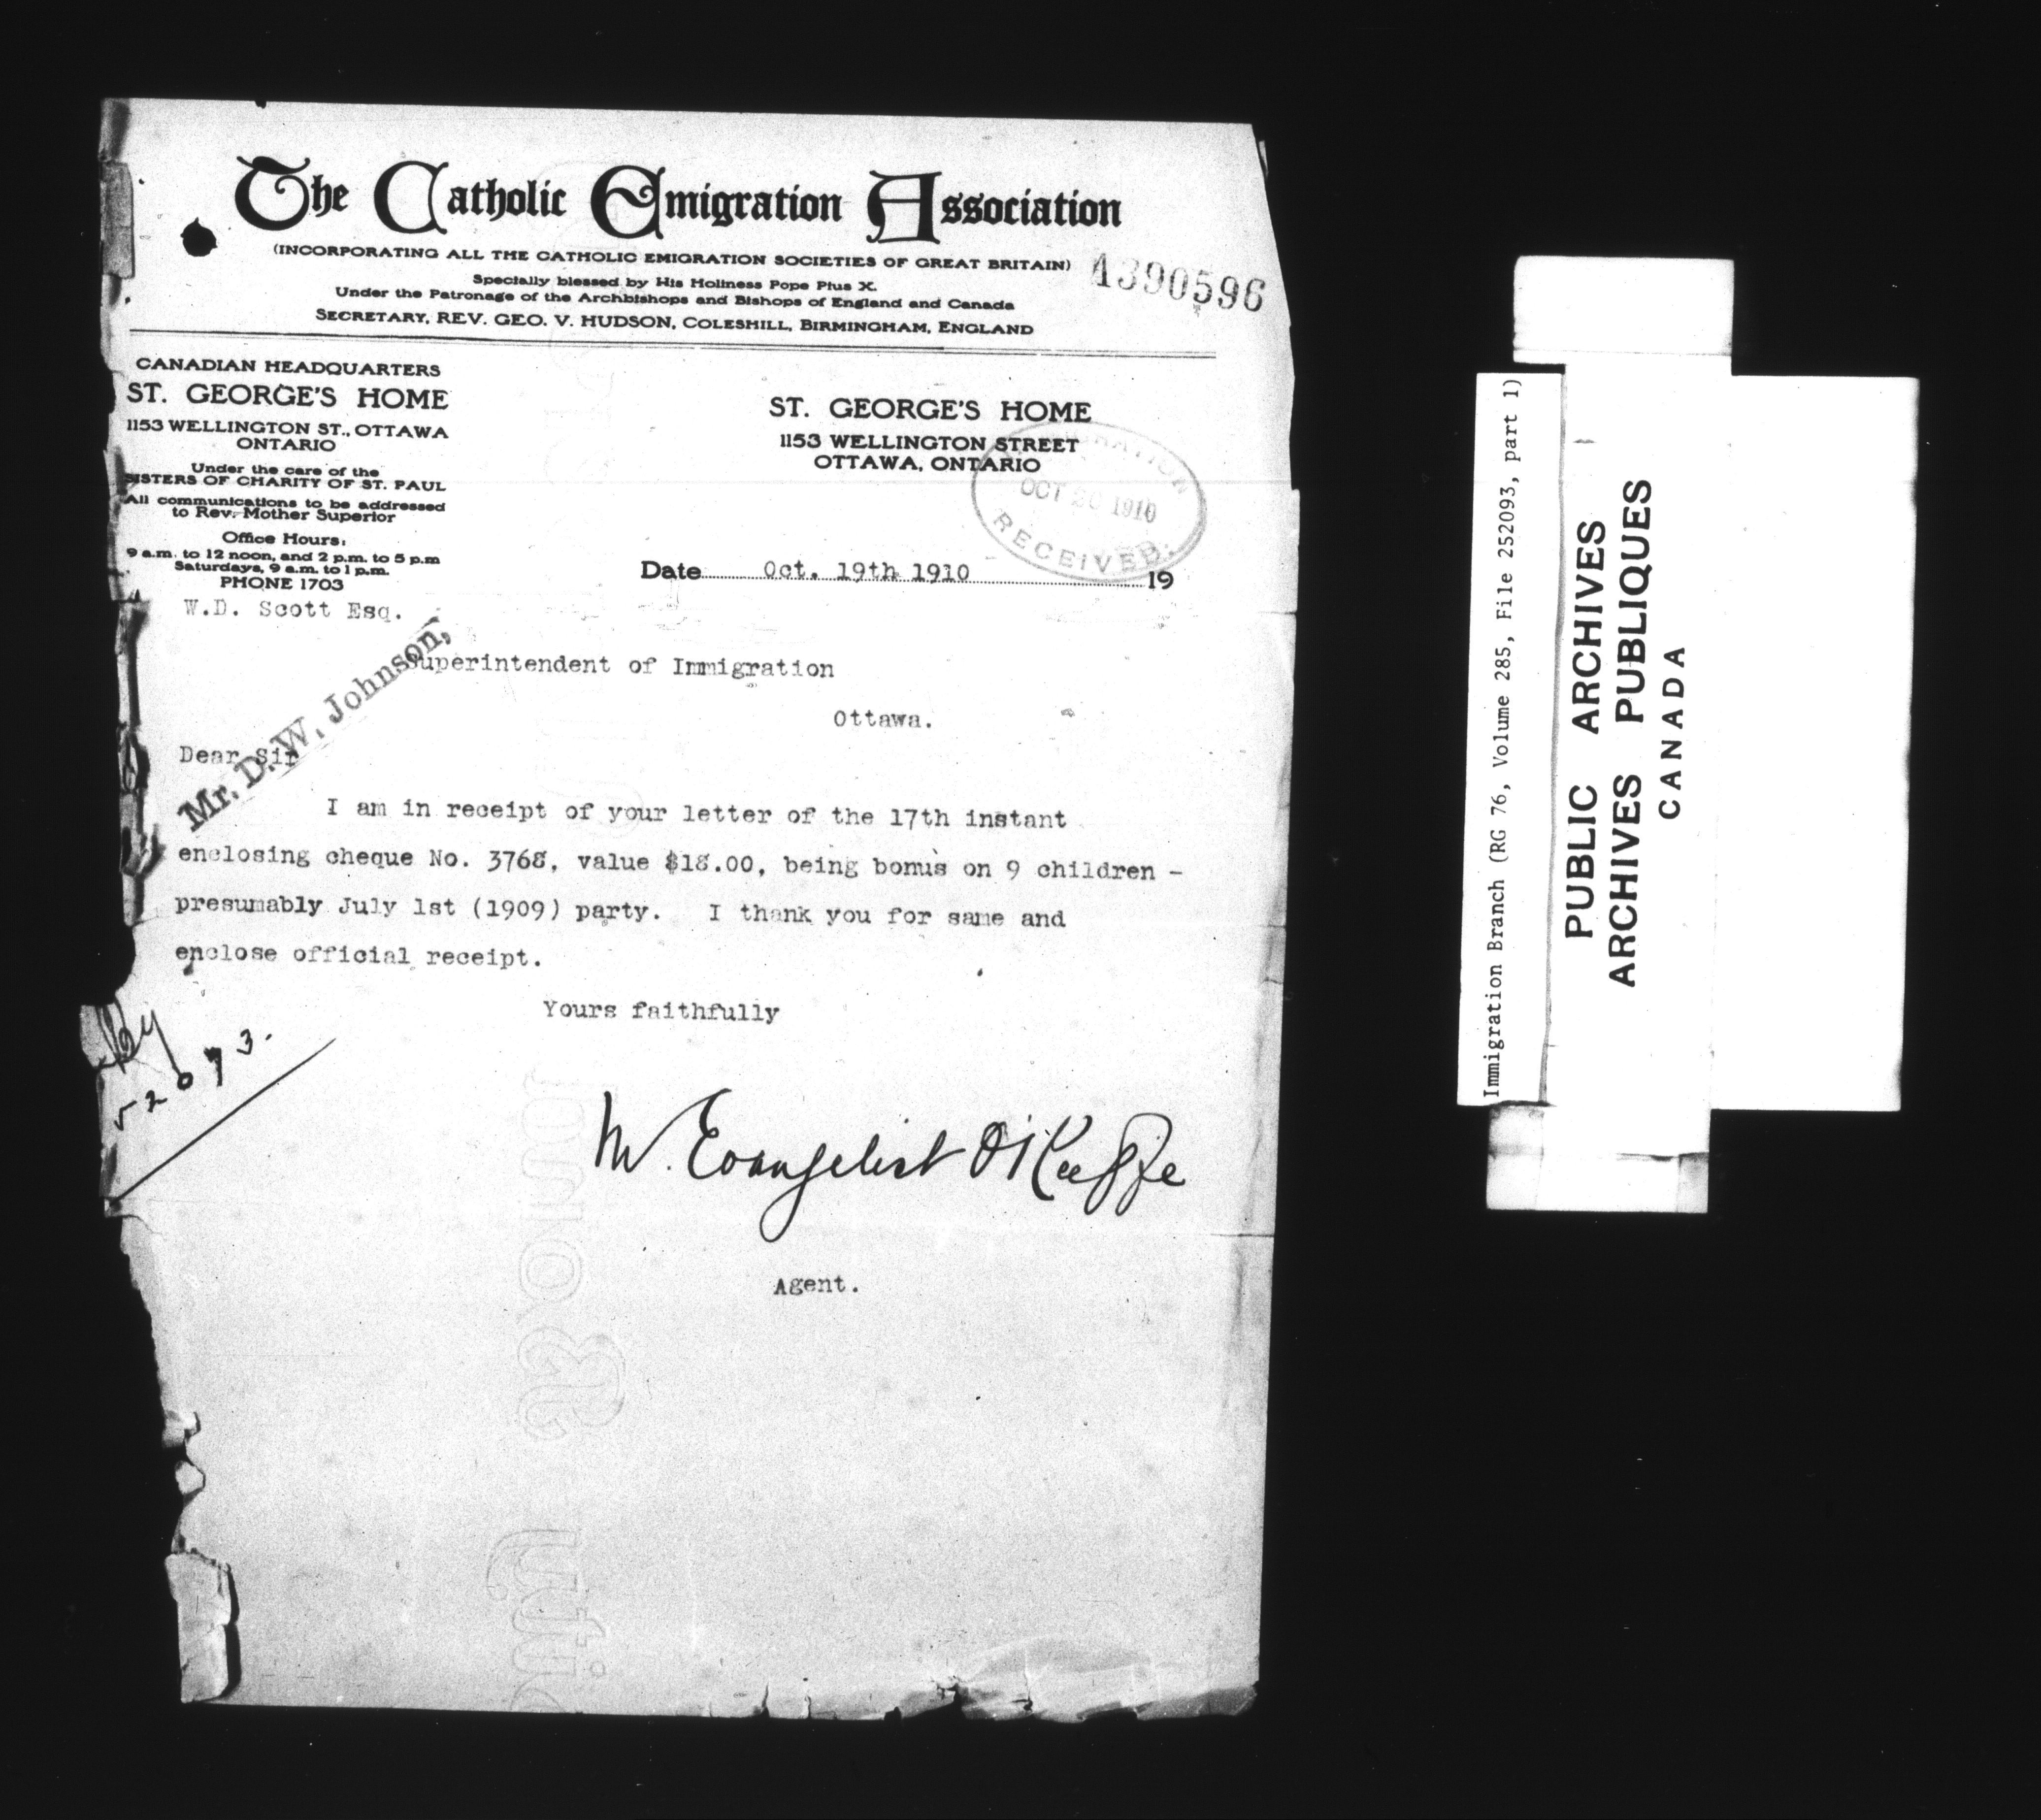 The Catholic Emigration Association
(INCORPORATING ALL THE CATHOLIC EMIGRATION SOCIETIES OF GREAT BRITAIN)
Specially blessed by His Holiness Pope Pius X.
Under the Patronage of the Archbishops and Bishops of England and Canada
SECRETARY, REV. GEO. V. HUDSON, COLESHILL, BIRMINGHAM, ENGLAND
1390596
CANADIAN HEADQUARTERS
ST. GEORGE'S HOME
1153 WELLINGTON ST., OTTAWA
ONTARIO
Under the care of the
SISTERS OF CHARITY OF ST. PAUL
All communications to be addressed
to Rev. Mother Superior
Office Hours:
9 a.m. to 12 noon, and 2 p.m. to 5 p.m
Saturdays, 9 a.m. to 1 p.m.
PHONE 1703
ST. GEORGE'S HOME
1153 WELLINGTON STREET
OTTAWA, ONTARIO
OCT 20 1910
RECEIVED.
Date Oct. 19th 1910 19
W.D. Scott Esq.
Superintendent of Immigration
Ottawa.
Mr. D. W. Johnson,
Dear Sir
I am in receipt of your letter of the 17th instant
enclosing cheque No. 3768, value $18.00, being bonus on 9 children -
presumably July 1st (1909) party. I thank you for same and
enclose official receipt.
Yours faithfully
52093.
M. Evangelist O'Keeffe
Agent.
Immigration Branch (RG 76, Volume 285, File 252093, part 1)
PUBLIC ARCHIVES
ARCHIVES PUBLIQUES
CANADA